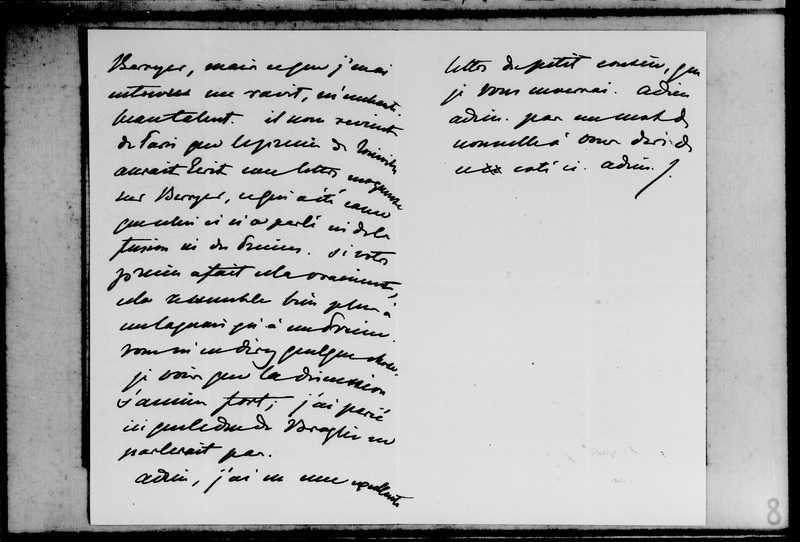 Berryer, mais ce que j'en ai
entendu me ravit, m'enchante.
beau talent. il nous revient
de Paris que le prince de Joinville
aurait écrit une lettre moqueuse
sur Berryer, ce qui a été cause
que celui ci n'a parlé ni de la
fusion ni des Princes. si votre
prince a fait cela vraiment,
cela ressemble bien plus à
un laquais qu'à un Prince.
vous m'en direz quelque chose.
je vois que la discussion
s'anime fort; j'ai parié
ici que le duc de Broglie ne
parlerait pas.
adieu, j'ai eu une excellente
lettre du petit cousin, que
je vous enverrai. adieu
adieu. par un mot de
nouvelle à vous dire de
ce côté ci. adieu.
8